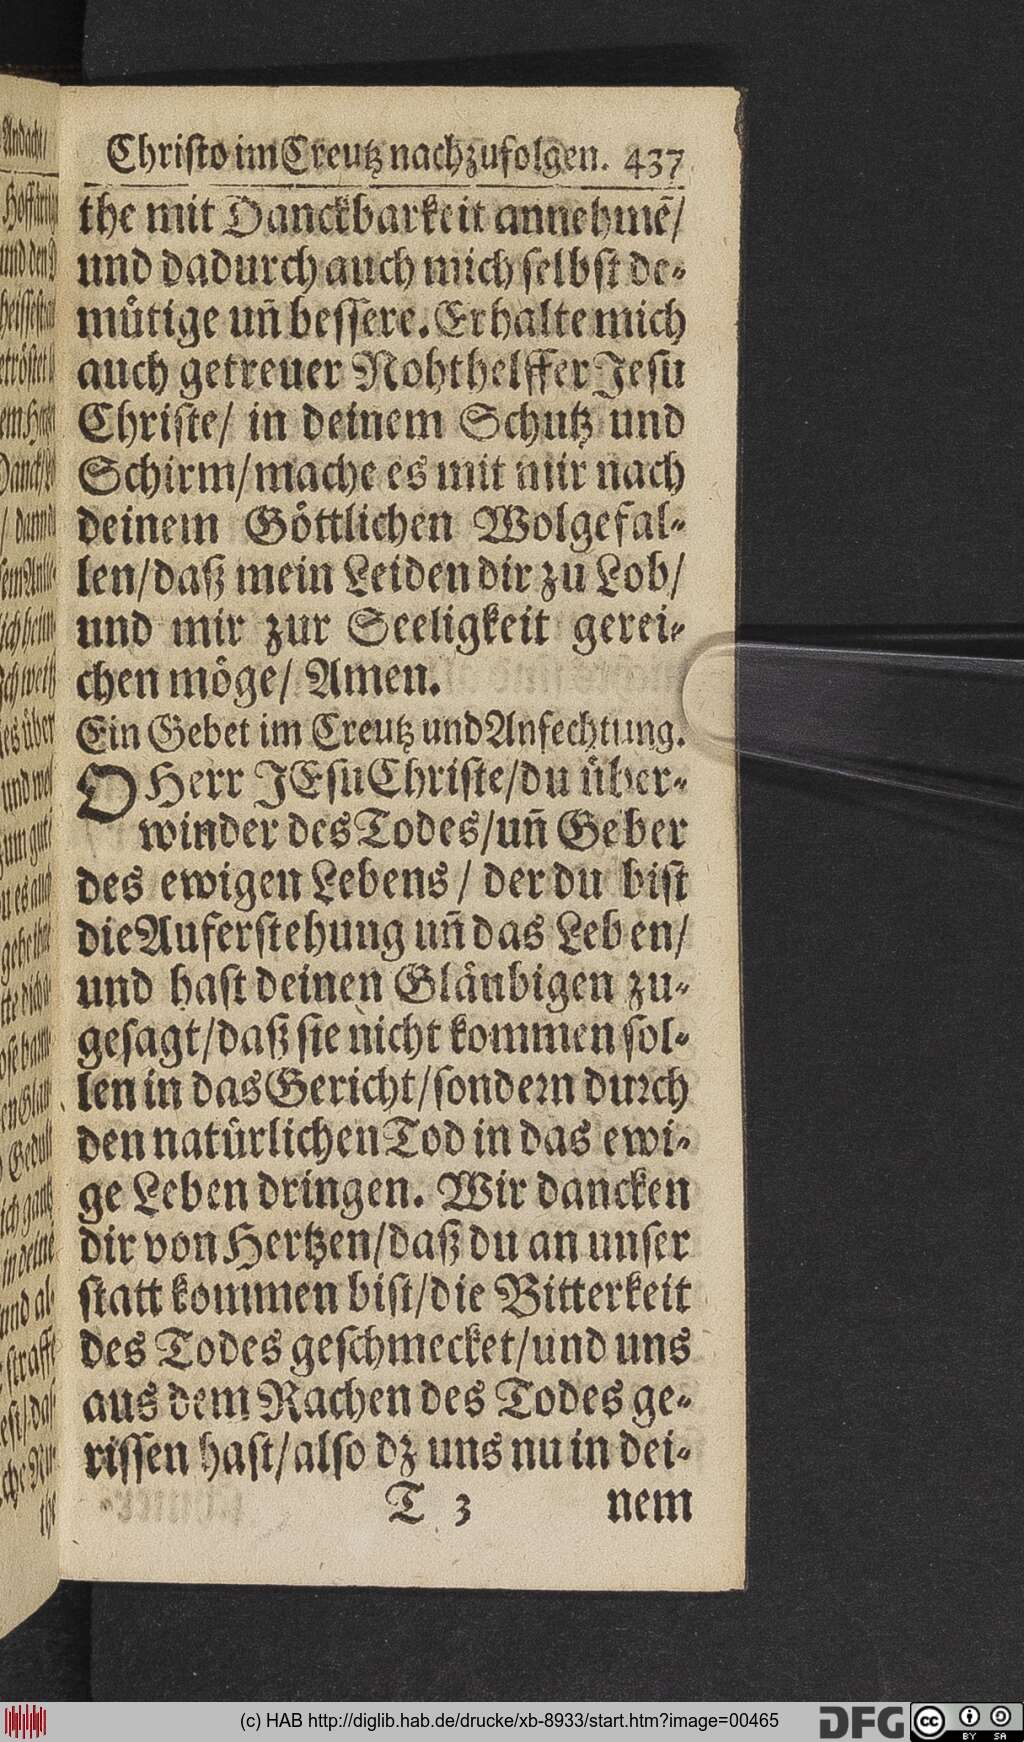 Christo im Creutz nachzufolgen. 437
the mit Danckbarkeit annehmē/
und dadurch auch mich selbst de-
mütige uñ bessere. Erhalte mich
auch getreuer Nohthelffer Jesu
Christe/ in deinem Schutz und
Schirm/ mache es mit mir nach
deinem Göttlichen Wolgefal-
len/ daß mein Leiden dir zu Lob/
und mir zur Seeligkeit gerei-
chen möge/ Amen.
Ein Gebet im Creutz und Anfechtung.
O Herr JEsu Christe/ du über-
winder des Todes/ uñ Geber
des ewigen Lebens/ der du bist
die Auferstehung uñ das Leben/
und hast deinen Gläubigen zu-
gesagt/ daß sie nicht kommen sol-
len in das Gericht/ sondern durch
den natürlichen Tod in das ewi-
ge Leben dringen. Wir dancken
dir von Hertzen/ daß du an unser
statt kommen bist/ die Bitterkeit
des Todes geschmecket/ und uns
aus dem Rachen des Todes ge-
rissen hast/ also dz uns nu in dei-
T 3 nem
(c) HAB http://diglib.hab.de/drucke/xb-8933/start.htm?image=00465
DFG
cc BY SA